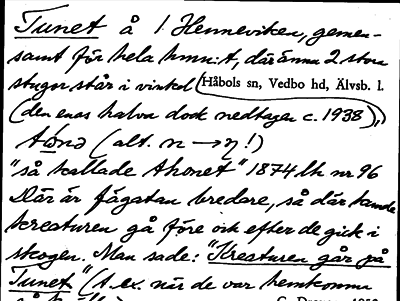 Tunet å 1 Henneviken, gemen-
samt för hela hmn:t, där ännu 2 stora
stugor står i vinkel Håbols sn, Vedbo hd, Älvsb. l.
(den enas halva dock nedtagen c. 1938),,
(alt. n → ŋ!)
"så kallade thonet" 1874 lk nr 96
Där är fägatan bredare, så där kunde
kreaturen gå före och efter de gick i
skogen. Man sade: "Kreaturen går på
Tunet" (t.ex. när de var hemkomna